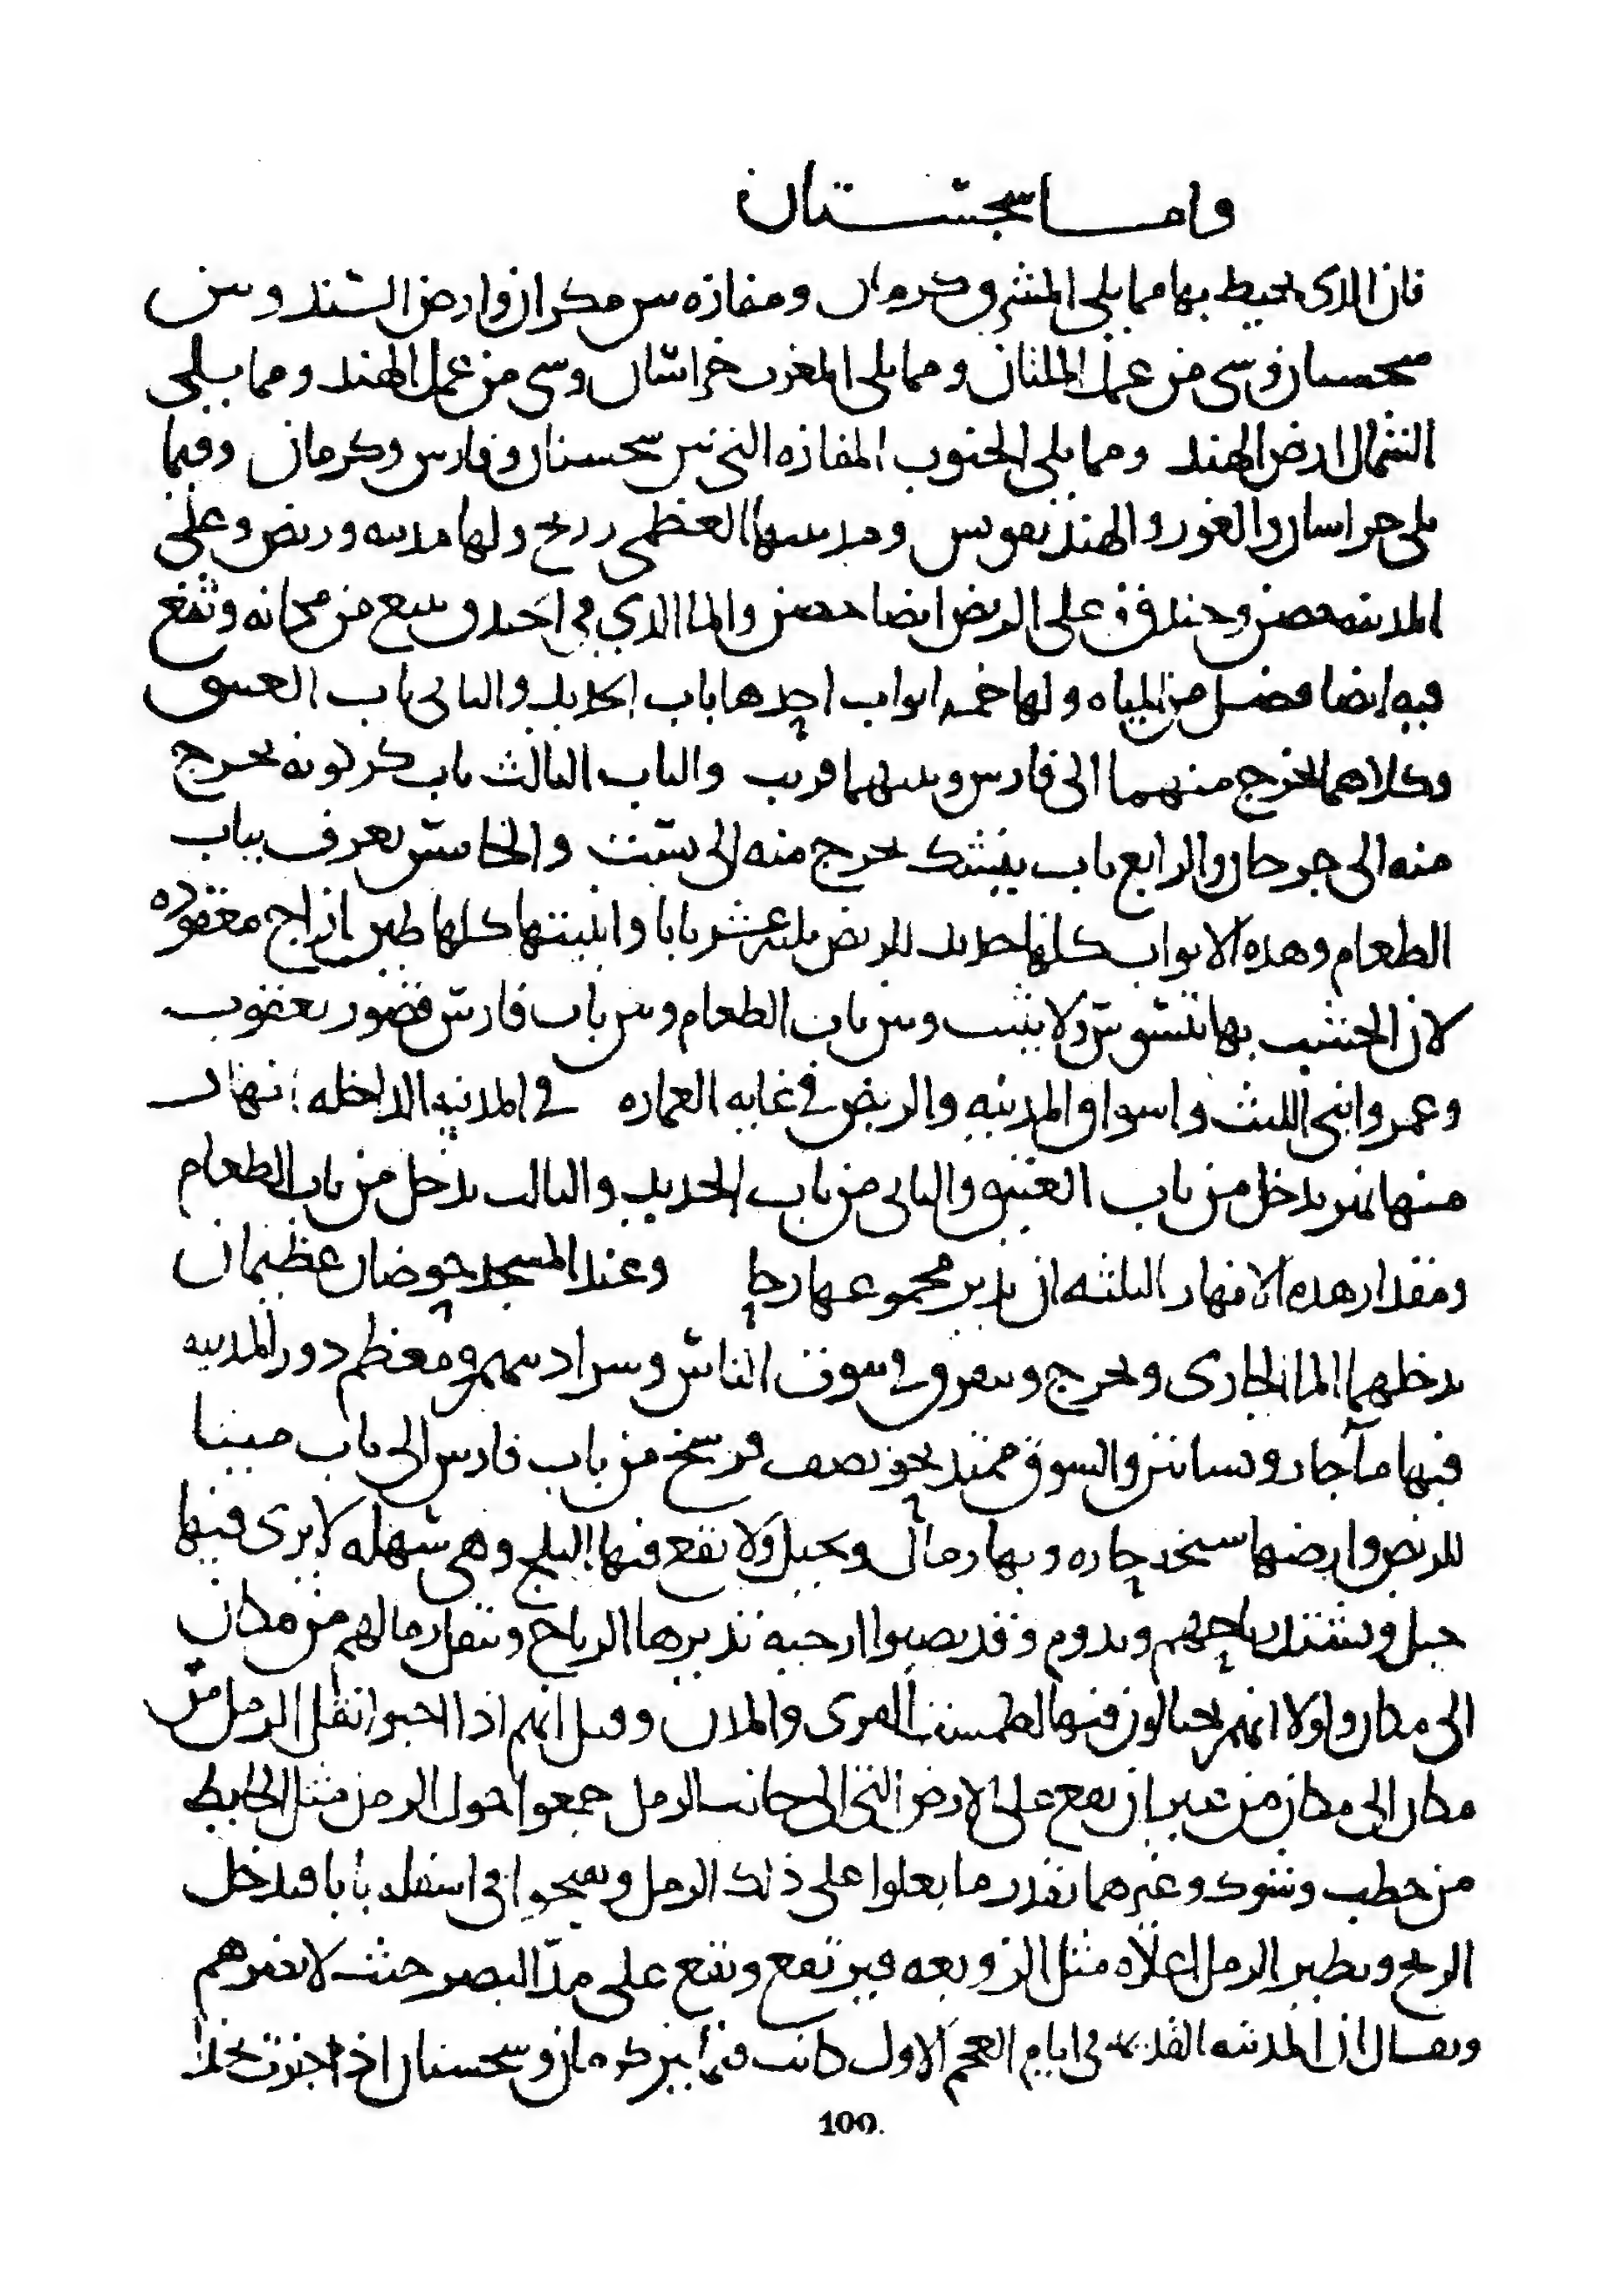 واما سجستان
فان الذى يحيط بها مما يلى المشرق وكرمان ومفازه بين مكران وارض السند وبين
سجستان وشى من عمل الملتان ومما يلى المغرب خراسان وشى من عمل الهند ومما يلى
الشمال ارض الهند ومما يلى الجنوب المفازه التى بين سجستان وفارس وكرمان وفيما
يلى خراسان والغور والهند تقويس ومدينتها العظمى زرنج ولها مدينه وربض وعلى
المدينه حصن وخندق وعلى الربض ايضا حصن والما الذي في الخندق ينبع من مكانه وتقع
فيه ايضا فضل من المياه ولها خمسه ابواب احدها باب الحديد والثانى باب العتيق
وكلاهما يخرج منهما الى فارس وبينهما قريب والباب الثالث باب كركويه يخرج
منه الى جرجان والرابع باب ينشك يخرج منه الى بست والخامس يعرف بباب
الطعام وهذه الابواب كلها حديد للربض ثلثه عشر بابا وابنيتها كلها طين ازاج معقوده
لان الخشب بها يتسوس ولا يثبت وبين باب الطعام وبين باب فارس قصور يعقوب
وعمرو ابنى الليث واسواق المدينه والربض في غايه العماره في المدينه الداخله انهار
منها نهر يدخل من باب العتيق والثانى من باب الحديد والثالث يدخل من باب الطعام
ومقدار هذه الانهار الثلثه ان يدير مجموعها رحا وعند المسجد حوضان عظيمان
يدخلهما الما الجارى ويخرج ويتفرق في بيوت الناس وسراديبهم ومعظم دور المدينه
فيها ما جار وبساتين والسوق ممتد نحو نصف فرسخ من باب فارس الى باب مينا
للربض وارضها سبخه حاره وبها رمال ونخيل ولا يقع فيها الثلج وهى سهله لا يرى فيها
جبل وتشتد رياحهم وتدوم وقد نصبوا ارحيه تديرها الرياح وتنقل رمالهم من مكان
الى مكان ولولا انهم يحتالون فيها لطمست القرى والمدن وقيل انهم اذا احبوا نقل الرمل من
مكان الى مكان من غير ان يقع على الارض التى الى جانب الرمل جمعوا حول الرمل مثل الحايط
من حطب وشوك وغيرهما بقدر ما يعلوا على ذلك الرمل ويفتحوا في اسفله بابا فيدخل
الريح ويطير الرمل اعلاه مثل الزوبعه فيرتفع ويقع على مد البصر حيث لا يضرهم
ويقال ان المدينه القديمه في ايام العجم الاول كانت فيما بين كرمان وسجستان اذا جزت
100.